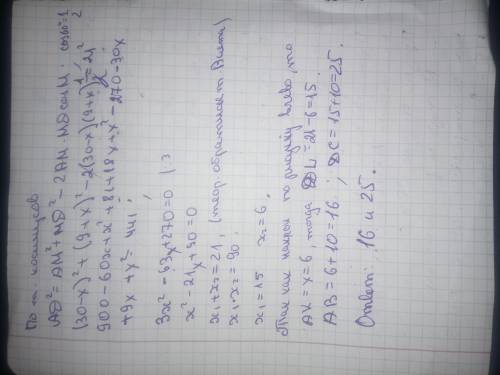 По т. косинусов
AD² = AM² + MD² − 2AM · MD cos M. cos 60° = 1/2
(30-x)² + (9+x)² − 2(30-x)(9+x) 1/2 = 21²
900 − 60x + x² + 81 + 18x + x² − 270 − 30x
+9x + x² = 441;
3x² − 63x + 270 = 0 | :3
x² − 21x + 90 = 0
x₁ + x₂ = 21, (теор. обратная т. Виета)
x₁ · x₂ = 90;
x₁ = 15 x₂ = 6.
Так как наклон по рисунку влево, то
AK = x = 6, тогда DL = 21 − 6 = 15.
AB = 6 + 10 = 16; DC = 15 + 10 = 25.
Ответ: 16 и 25.